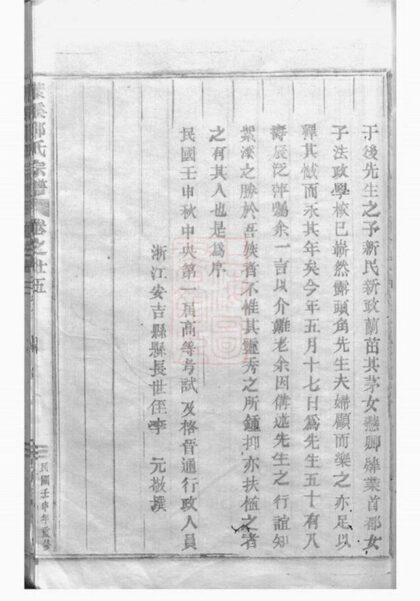 于後先生之子新民新政前苗其茅女燕卿肄業首都女
子法政學校已嶄然露頭角先生夫婦顧而樂之亦足以
釋其憾而永其年矣今年五月十七日為先生五十有八
壽辰泛萍屬余一言以介難老余因備述先生之行誼知
紫溪之勝於吾族者不惟其靈秀之所鍾抑亦扶植之者
之有其人也是為序
民國壬申秋中央第一屆高等考試及格晉通行政人員
浙江安吉縣縣長世侄李元敬撰
氏宗譜
卷之廿五
民國壬申年重修